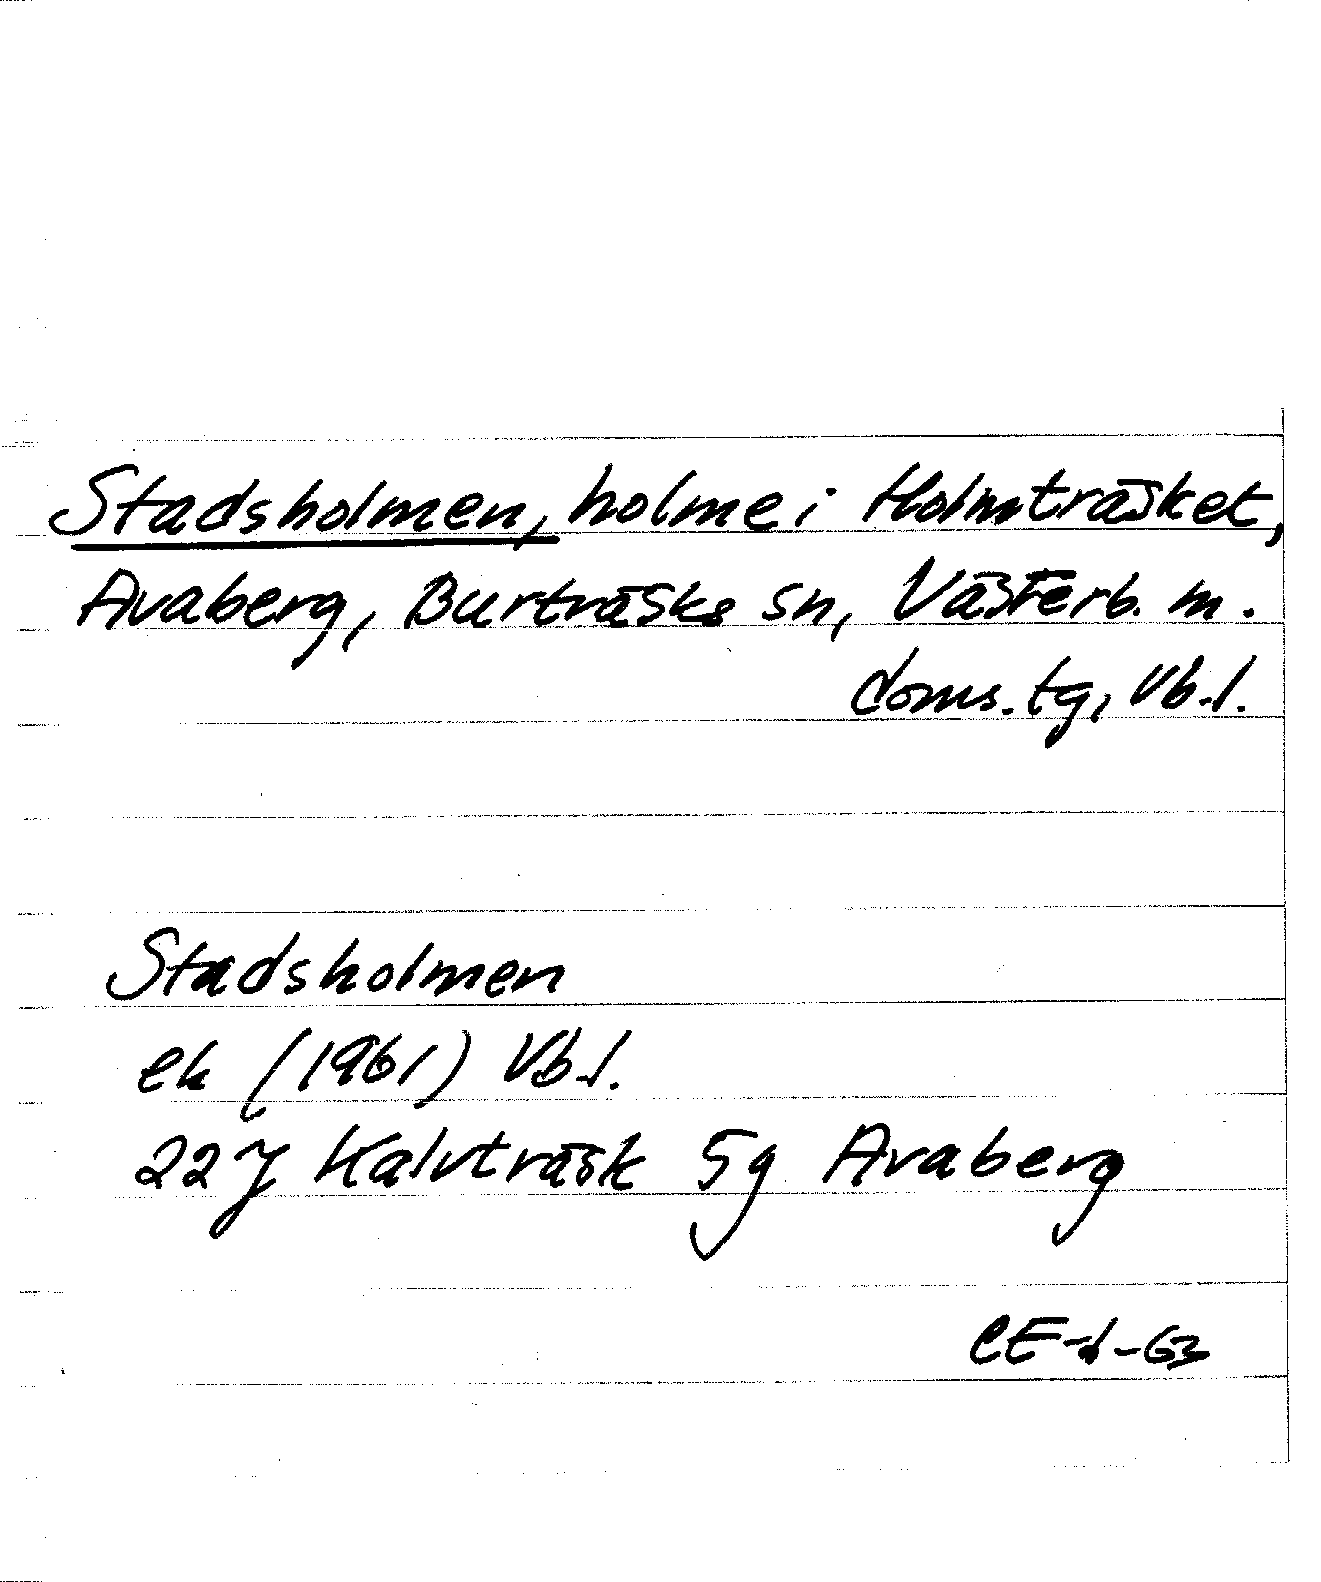 Stadsholmen, holme i Holmträsket,
Avaberg, Burträsks sn, Västerb. m.
doms. tg, Vb. l.
Stadsholmen
ek (1961) Vb. l.
22J Kalvträsk 5g Avaberg
CE-d-63